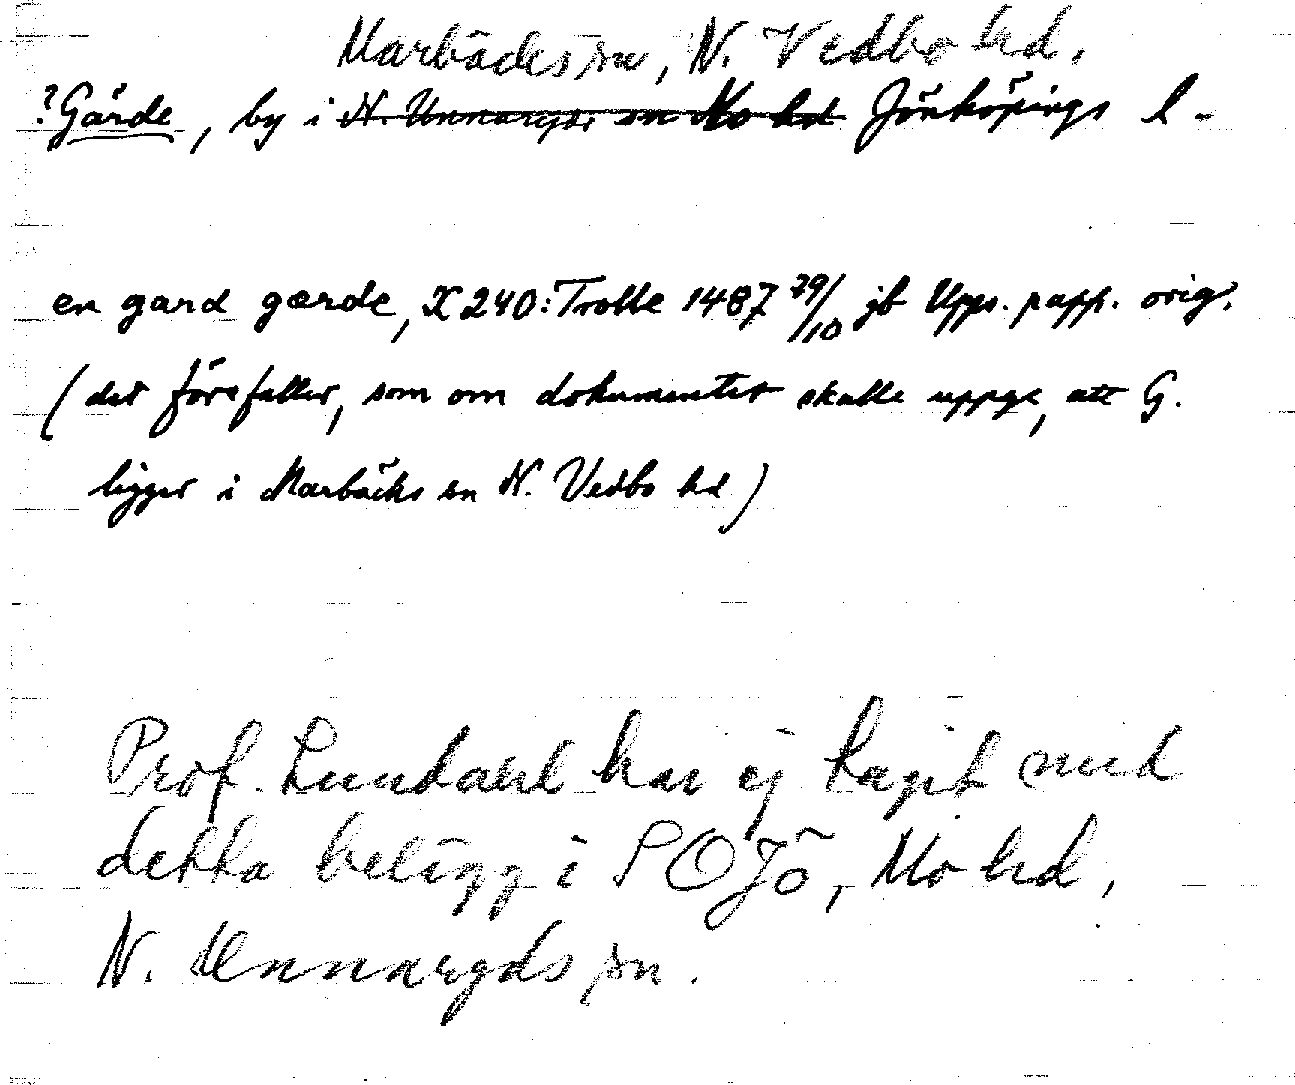 Marbäcks sn, N. Vedbo hd.
?Gärde, by i N. Unnaryds sn Mo hd Jönköpings l.
en gard gærde, X 240: Trolle 1487 29/10 jb Upps. papp. orig.
(det förefaller, som om dokumentet skulle uppge, att G.
ligger i Marbäcks sn N. Vedbo hd)
Prof. Lundahl har ej tagit med
detta belägg i SOJö, Mo hd,
N. Unnaryds sn.